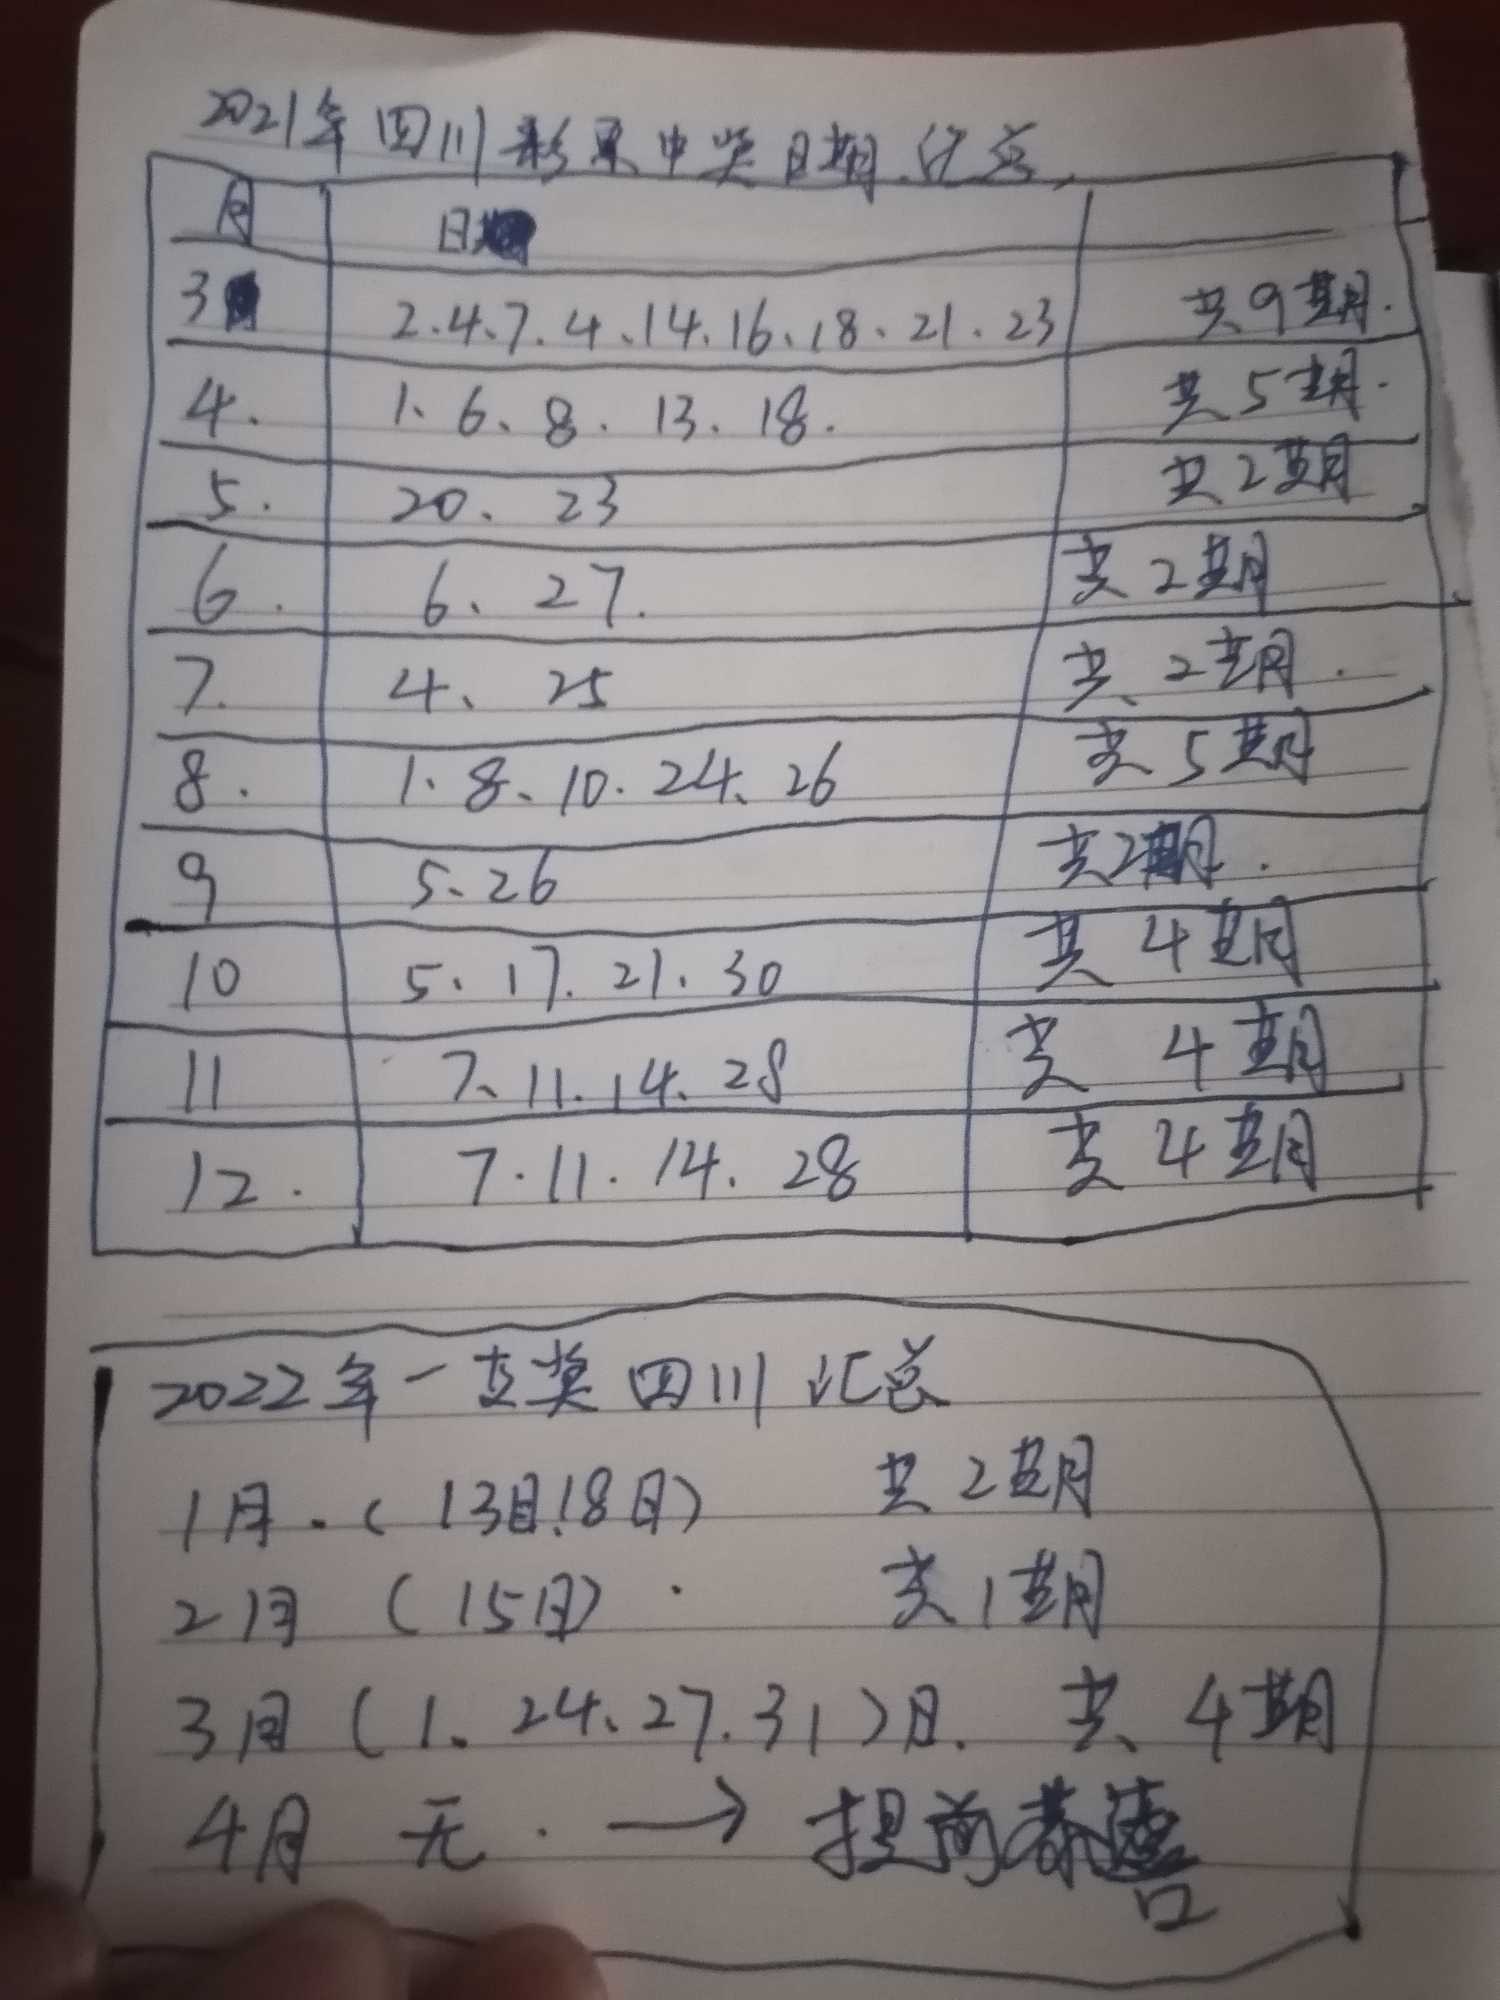 2021年四川彩票中奖日期.汇总
月 日
3 2.4、7.4、14、16、18、21.23 共9期.
4. 1、6、8.13.18. 共5期.
5. 20、23 共2期
6. 6、27. 共2期
7. 4、25 共2期.
8. 1.8、10.24、26 共5期
9 5、26 共2期.
10 5、17.21.30 共4期
11 7、11.14.28 共4期
12. 7.11.14.28 共4期
2022年一支奖四川汇总
1月.(13日18日) 共2期
2月(15日). 共1期
3月(1、24、27.31)日. 共4期
4月 无.→提前恭喜